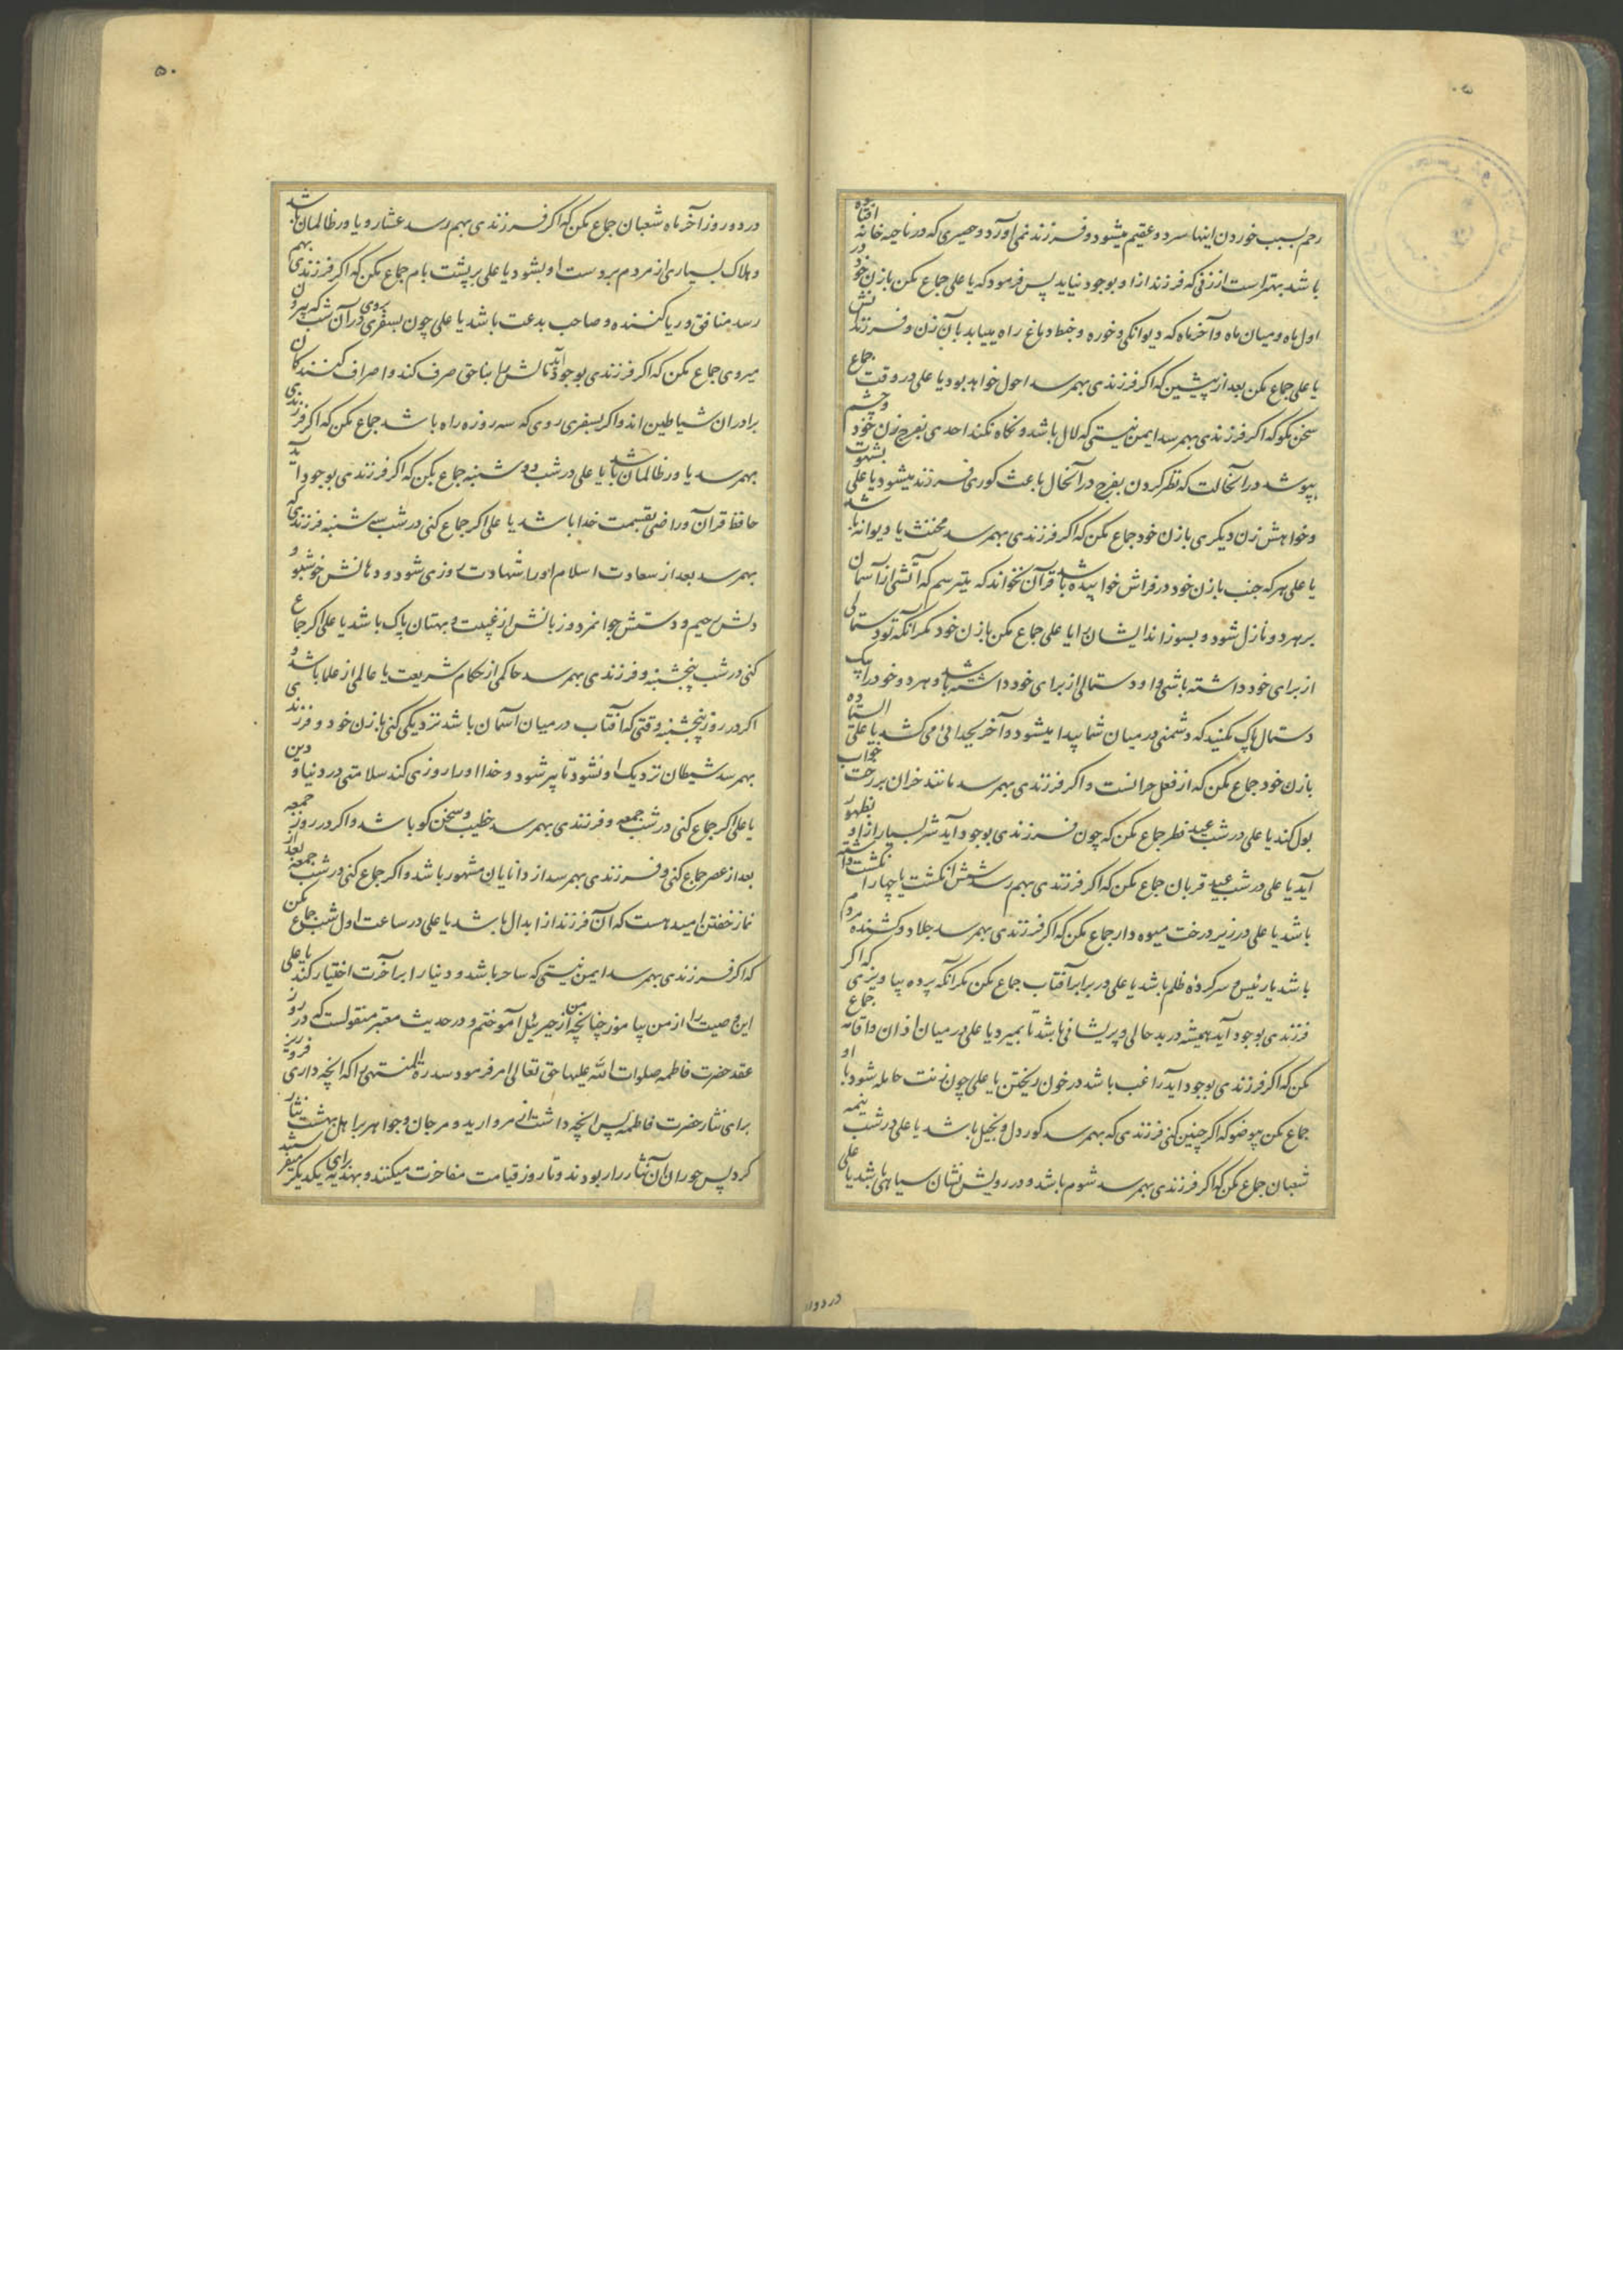 رحم بسبب خوردن اینها سرد و عقیم میشود و فرزند نمی آورد و حصیری که در ناحیه خانه افتاده
باشد بهتر است از زنی که فرزند از او بوجود نیاید پس فرمود که یا علی جماع مکن با زن خود در
اول ماه و میان ماه و آخر ماه که دیوانگی و خوره و خبط دماغ راه مییابد بآن زن و فرزندانش
یا علی جماع مکن بعد از پیشین که اگر فرزندی بهمرسد احول خواهد بود یا علی در وقت جماع
سخن مگو که اگر فرزندی بهمرسد ایمن نیستی که لال باشد و نگاه نکند احدی بفرج زن خود و چشم
بپوشد در آنحالت که نظر کردن بفرج در آنحال باعث کوری فرزند میشود یا علی بشهوت
و خواهش زن دیگری با زن خود جماع مکن که اگر فرزندی بهمرسد مخنث یا دیوانه باشد
یا علی هر که جنب با زن خود در فراش خوابیده باشد قرآن نخواند که میترسم که آتشی از آسمان
بر هر دو نازل شود و بسوزاند ایشان را یا علی جماع مکن با زن خود مگر آنکه تو دستمالی
از برای خود داشته باشی و او دستمالی از برای خود داشته باشد و هر دو خود را بیک
دستمال پاک مکنید که دشمنی در میان شما پیدا میشود و آخر بجدائی می کشد یا علی ایستاده
با زن خود جماع مکن که از فعل خرانست و اگر فرزندی بهمرسد مانند خران بر رخت خواب
بول کند یا علی در شب عید فطر جماع مکن که چون فرزندی بوجود آید شر بسیار از او بظهور
آید یا علی در شب عید قربان جماع مکن که اگر فرزندی بهم رسد شش انگشت یا چهار انگشت داشته
باشد یا علی در زیر درخت میوه دار جماع مکن که اگر فرزندی بهمرسد جلاد و کشنده مردم
باشد یا رئیس و سرکرده ظلم باشد یا علی در برابر آفتاب جماع مکن مگر آنکه پرده بیاویزی که اگر
فرزندی بوجود آید همیشه در بد حالی و پریشانی باشد تا بمیرد یا علی در میان اذان و اقامه جماع
مکن که اگر فرزندی بوجود اید راغب باشد در خون ریختن یا علی چون زنت حامله شود با او
جماع مکن بیوضو که اگر چنین کنی فرزندی که بهمرسد کور دل و بخیل باشد یا علی در شب نیمه
شعبان جماع مکن که اگر فرزندی بهمرسد شوم باشد و در رویش نشان سیاهی باشد یا علی
در دو روز
۵۰
در دو روز آخر ماه شعبان جماع مکن که اگر فرزندی بهم رسد عشار و یاور ظالمان باشد
و هلاک بسیاری از مردم بر دست او بشود یا علی بر پشت بام جماع مکن که اگر فرزندی بهم
رسد منافق و ریا کننده و صاحب بدعت باشد یا علی چون بسفری بروی در آن شب که بیرون
میروی جماع مکن که اگر فرزندی بوجود آید مالش را بناحق صرف کند و اصراف کنندگان
برادران شیاطین اند و اگر بسفری روی که سه روزه راه باشد جماع مکن که اگر فرزندی
بهمرسد یاور ظالمان باشد یا علی در شب دوشنبه جماع بکن که اگر فرزندی بوجود آید
حافظ قرآن و راضی بقسمت خدا باشد یا علی اگر جماع کنی در شب سه شنبه فرزندی که
بهمرسد بعد از سعادت اسلام او را شهادت روزی شود و دهانش خوشبو و
دلش رحیم و دستش جوانمرد و زبانش از غیبت و بهتان پاک باشد یا علی اگر جماع
کنی در شب پنجشنبه و فرزندی بهمرسد حاکمی از حکام شریعت یا عالمی از علما باشد و
اگر در روز پنجشنبه وقتی که آفتاب در میان آسمان باشد نزدیکی کنی با زن خود و فرزندی
بهمرسد شیطان نزدیک او نشود تا پیر شود و خدا او را روزی کند سلامتی در دنیا و دین
یا علی اگر جماع کنی در شب جمعه و فرزندی بهمرسد خطیب و سخن گو باشد و اگر در روز جمعه
بعد از عصر جماع کنی و فرزندی بهمرسد از دانایان مشهور باشد و اگر جماع کنی در شب جمعه بعد از
نماز خفتن امید هست که آن فرزند از ابدال باشد یا علی در ساعت اول شب جماع مکن
که اگر فرزندی بهمرسد ایمن نیستی که ساحر باشد و دنیا را بر آخرت اختیار کند یا علی
این وصیت را از من بیاموز چنانچه من از جبرئیل آموختم و در حدیث معتبر منقولست که در روز
عقد حضرت فاطمه صلوات الله علیها حق تعالی امر فرمود سدرة المنتهی را که انچه داری فرو ریز
برای نثار حضرت فاطمه پس انچه داشت از مروارید و مرجان و جواهر بر اهل بهشت نثار
کرد پس حوران آن نثار را ربودند و تا روز قیامت مفاخرت میکنند و بهدیه برای یکدیگر میفرستند